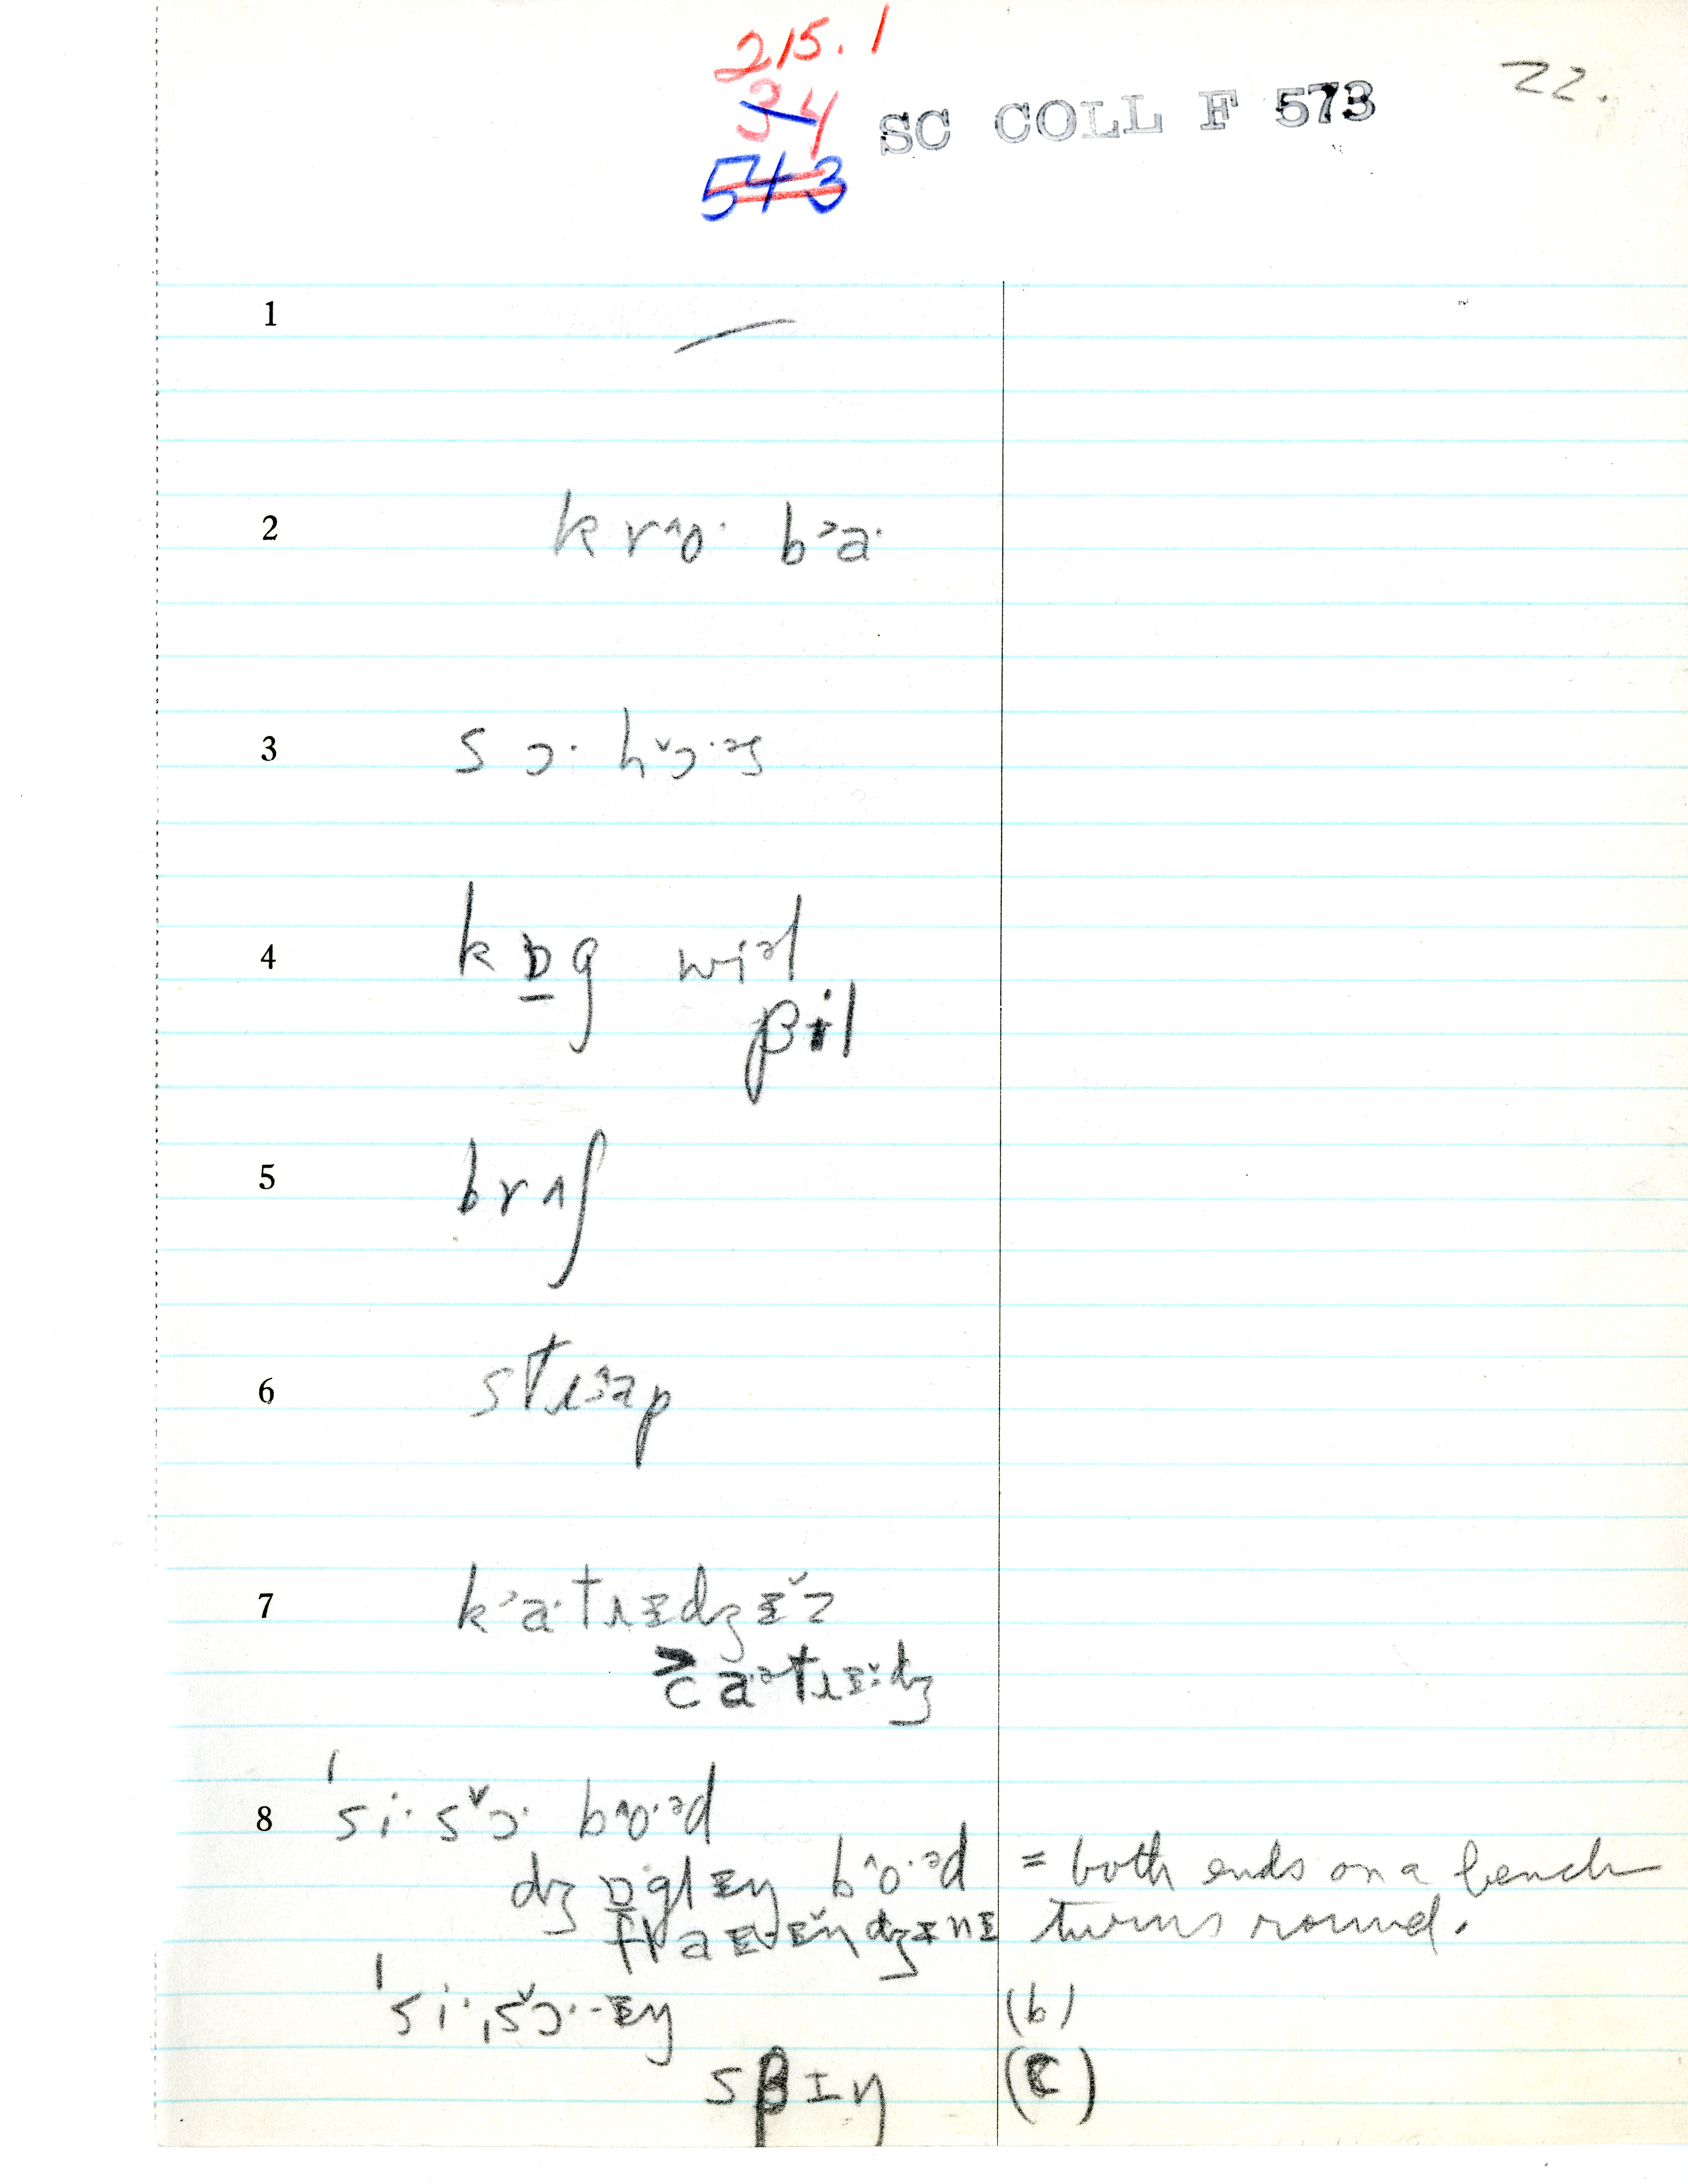 215.1
34
543
SC COLL F 573
22.
1 —
2 kr^o· b˃a·
3 s ɔ· h˅ɔ·ᵊs
4 k ɒ̱ g wiᵊl
βil
5 brʌʃ
6 stɹ^ap
7 k˃a·tɹɪdzɪ˅z
c̄a·ᵊtɹɪ˅dz
8 ˈsi·s˅ɔ· b^o·ᵊd
dz ɒ̱ glɪŋ b^o·ᵊd = both ends on a bench
flaɪ-ɪ˅ŋ dzɪnɪ turns round.
ˈsi·ˌs˅ɔ·-ɪŋ (b)
sβɪŋ (C)